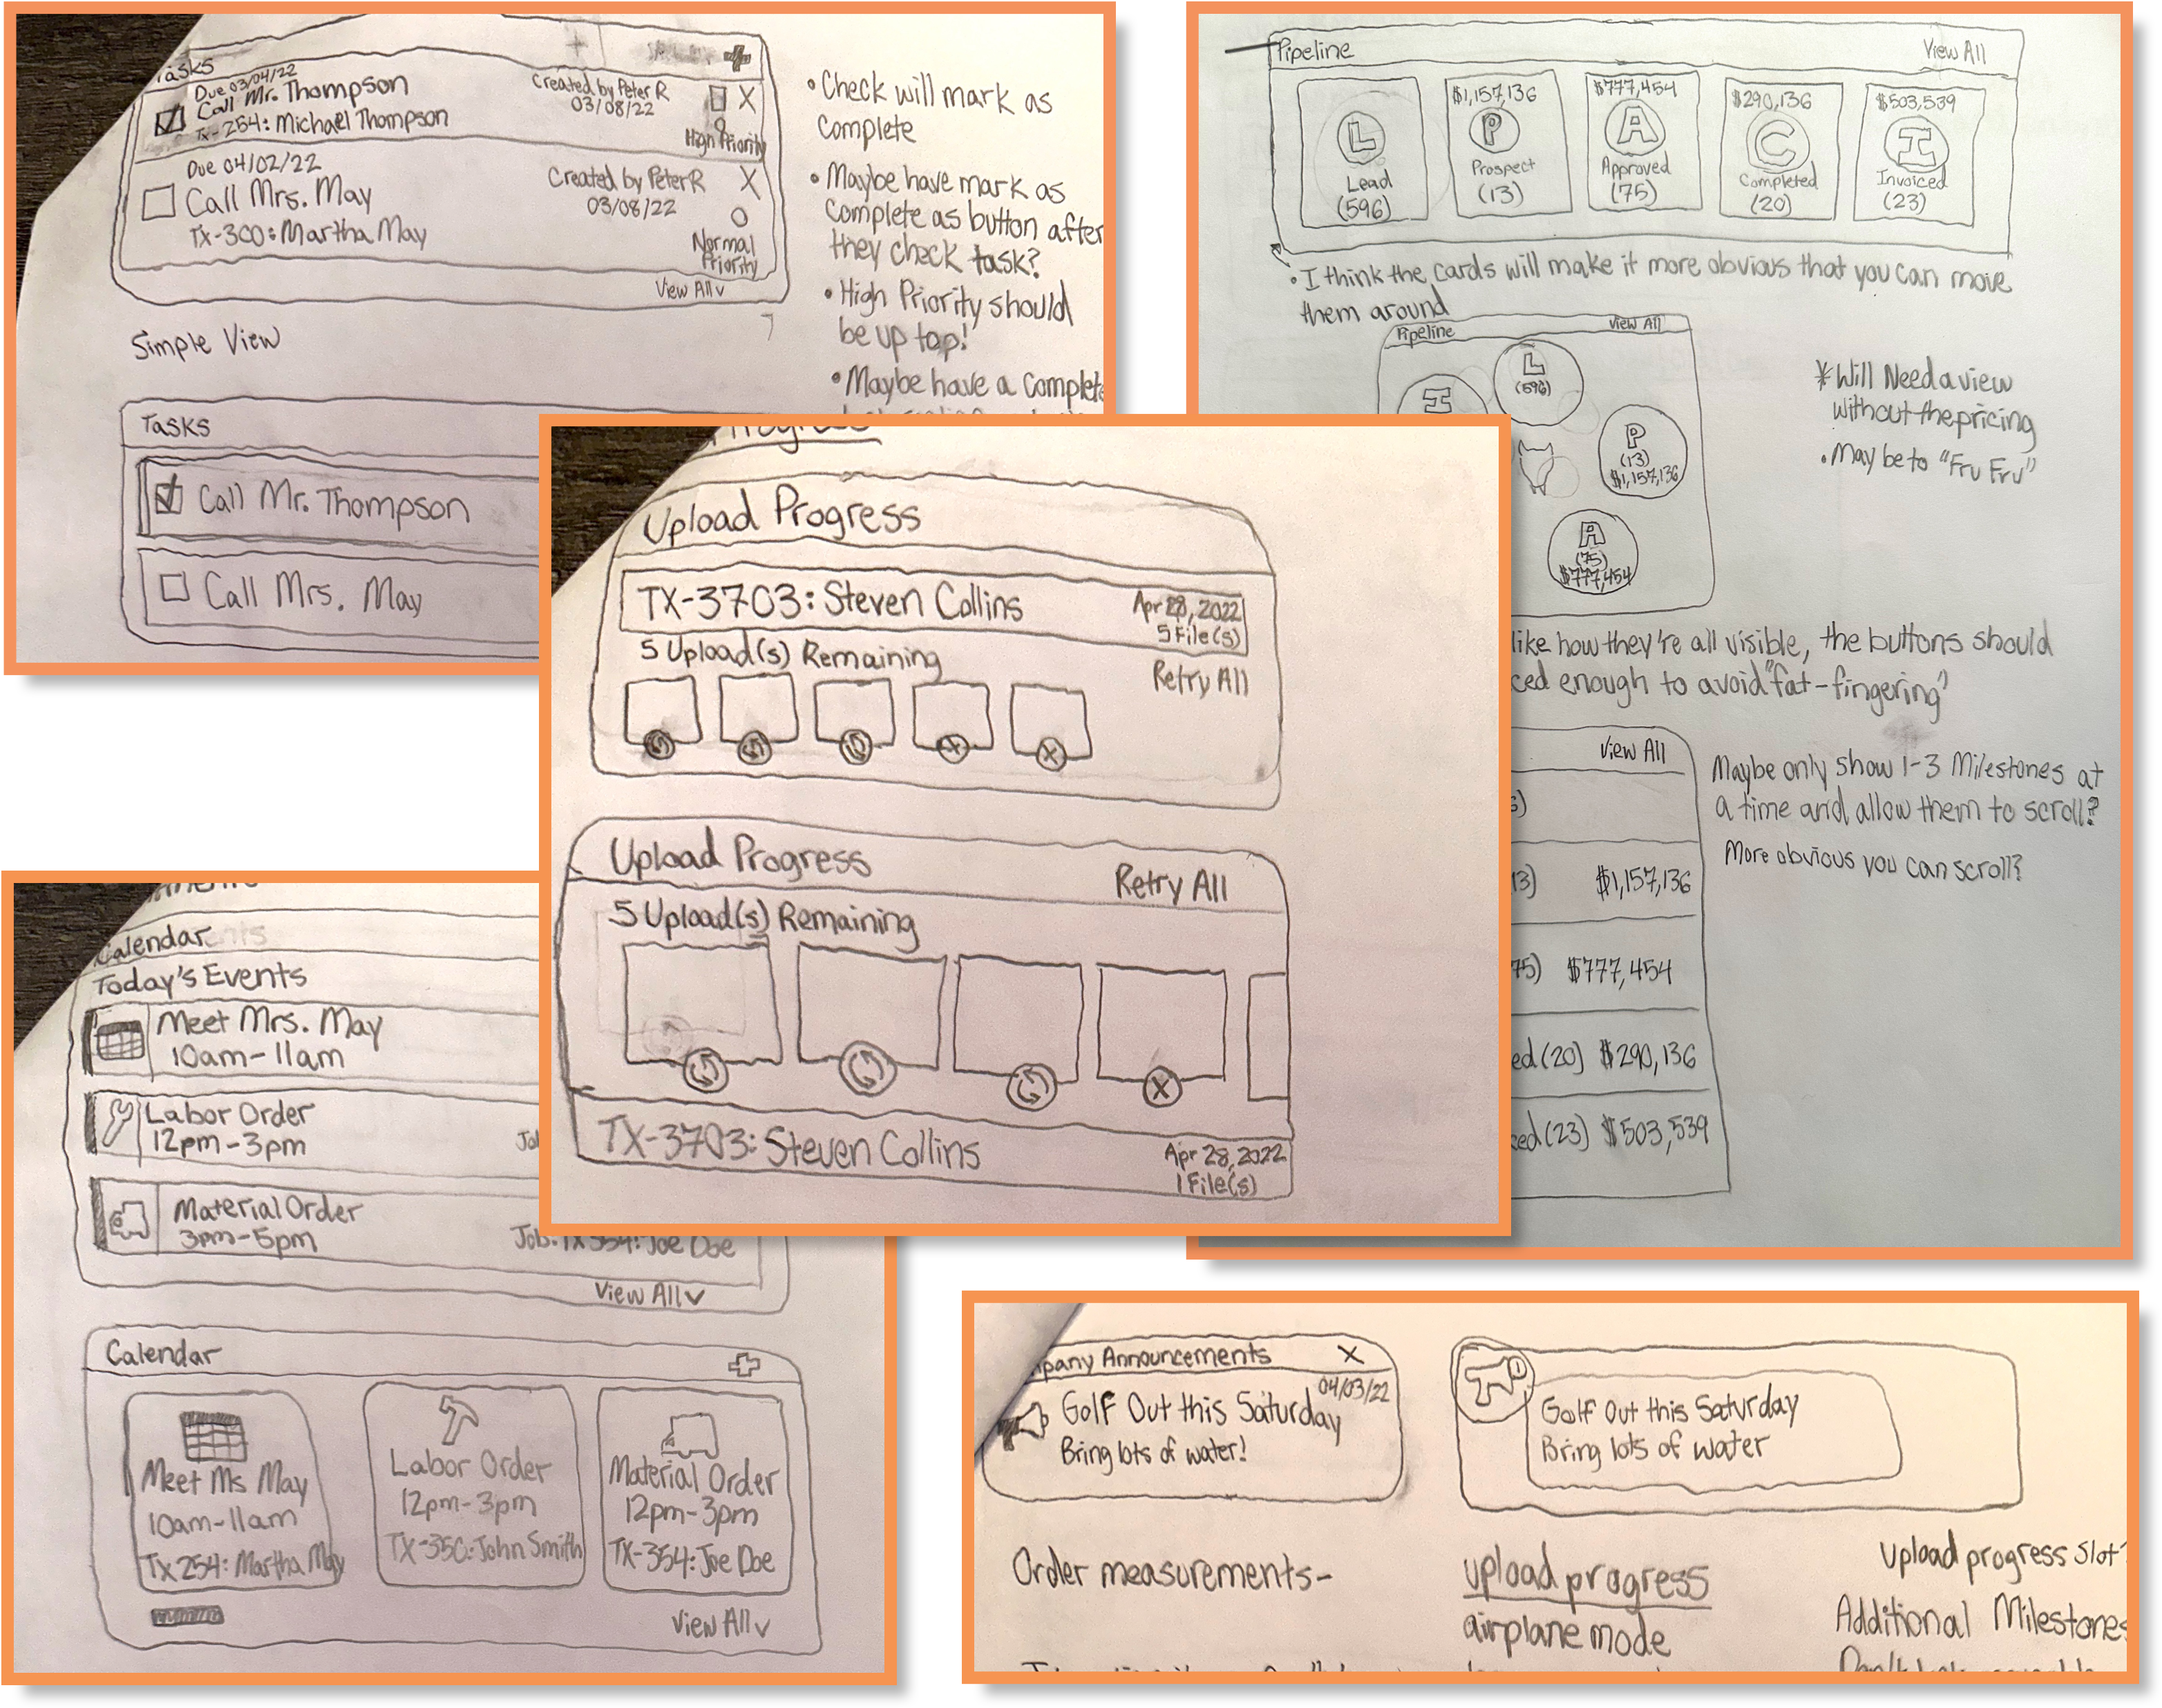 Tasks
Due 03/04/22
Call Mr. Thompson
Tx-254: Michael Thompson
Created by Peter R
03/08/22
X
High Priority
Due 04/02/22
Call Mrs. May
Tx-300: Martha May
Created by Peter R
03/08/22
X
Normal
Priority
View All
• Check will mark as
Complete
• Maybe have mark as
Complete as button after
they check task?
• High Priority should
be up top!
• Maybe have a Complete
Simple View
Tasks
Call Mr. Thompson
Call Mrs. May
Pipeline
View All
L
Lead
(596)
$1,157,136
P
Prospect
(13)
$777,454
A
Approved
(75)
$290,136
C
Completed
(20)
$503,539
I
Invoiced
(23)
• I think the cards will make it more obvious that you can move
them around
Pipeline
View All
L
(596)
I
P
(13)
$1,157,136
A
(75)
$777,454
* Will Need a view
without the pricing
• May be to "Fru Fru"
like how they're all visible, the buttons should
ced enough to avoid "fat-fingering"
View All
13) $1,157,136
75) $777,454
ed (20) $290,136
ced (23) $503,539
Maybe only show 1-3 Milestones at
a time and allow them to scroll?
More obvious you can scroll?
Progress
Upload Progress
TX-3703: Steven Collins
Apr 28, 2022
5 File(s)
5 Upload(s) Remaining
Retry All
X
X
Upload Progress
Retry All
5 Upload(s) Remaining
X
TX-3703: Steven Collins
Apr 28, 2022
1 File(s)
Calendar
Today's Events
Meet Mrs. May
10am-11am
Labor Order
12pm-3pm
Jo
Material Order
3pm-5pm
Job: TX 354: Joe Doe
View All
Calendar
Meet Ms May
10am-11am
Tx 254: Martha May
Labor Order
12pm-3pm
TX-350: John Smith
Material Order
12pm-3pm
TX-354: Joe Doe
View All
mpany Announcements
X
04/03/22
Golf Out this Saturday
Bring lots of water!
Golf Out this Saturday
Bring lots of water
Order measurements-
upload progress
airplane mode
Upload progress slot?
Additional Milestones